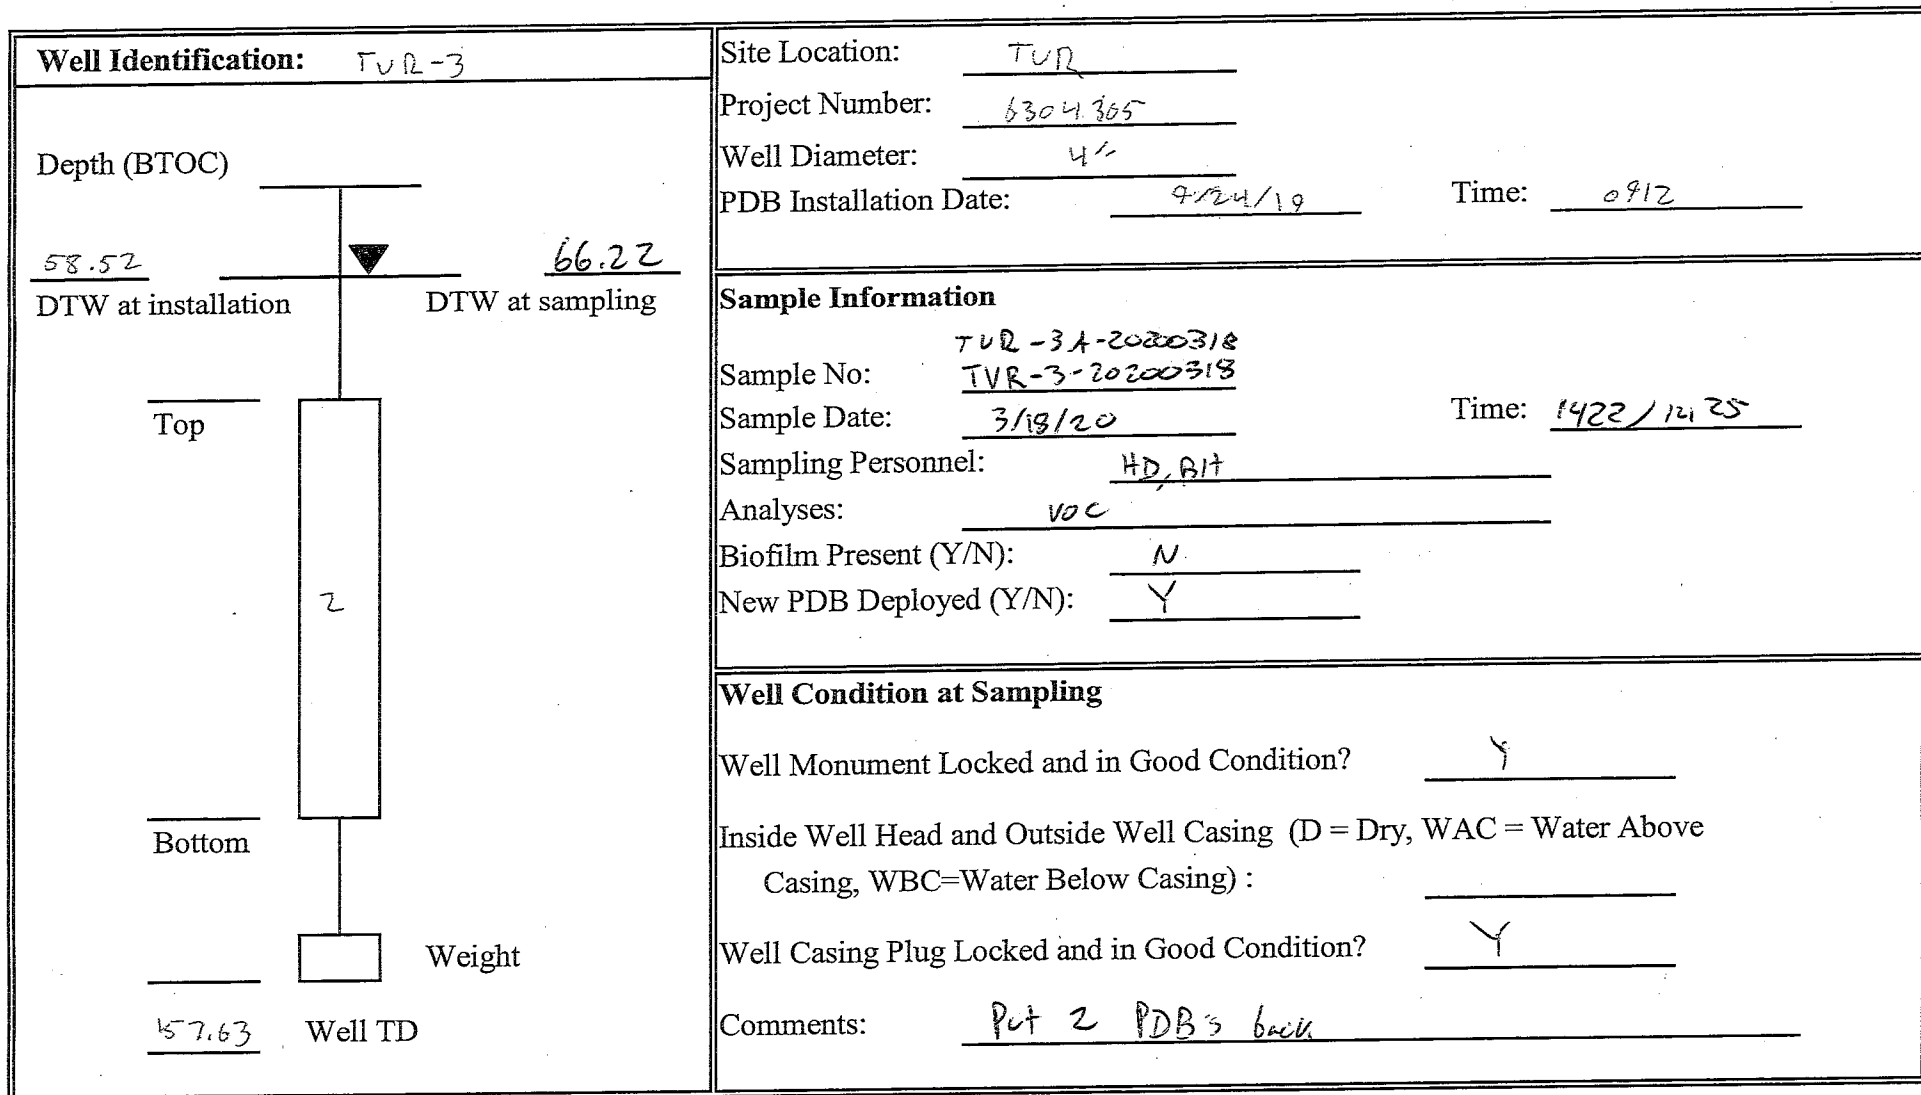 Well Identification: TVR-3
Depth (BTOC)
58.52 66.22
DTW at installation DTW at sampling
Top
2
Bottom
Weight
Well TD
Site Location: TVR
Project Number: 6304.305
Well Diameter: 4"
PDB Installation Date: 9/24/19 Time: 0912
Sample Information
TVR-3A-20200318
Sample No: TVR-3-20200318
Sample Date: 3/18/20 Time: 1422 /
Sampling Personnel: HD, BH
Analyses: VOC
Biofilm Present (Y/N): N
New PDB Deployed (Y/N): Y
Well Condition at Sampling
Well Monument Locked and in Good Condition? Y
Inside Well Head and Outside Well Casing (D = Dry, WAC = Water Above
Casing, WBC=Water Below Casing) :
Well Casing Plug Locked and in Good Condition? Y
Comments: Put 2 PDB's back